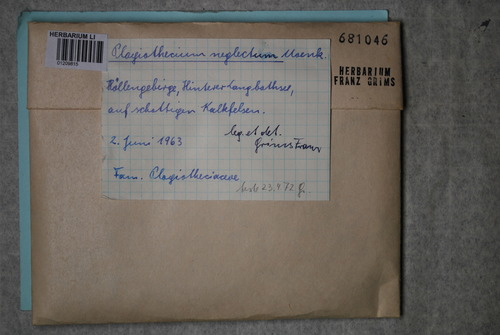 HERBARIUM LI
681046
HERBARIUM
FRANZ GRIMS
Plagiothecium neglectum Moenk.
Höllengebirge, Hinterer Langbathsee,
auf schattigen Kalkfelsen.
2. Juni 1963
leg. et det.
Grims Franz
Fam. Plagiotheciaceae
23.4.72